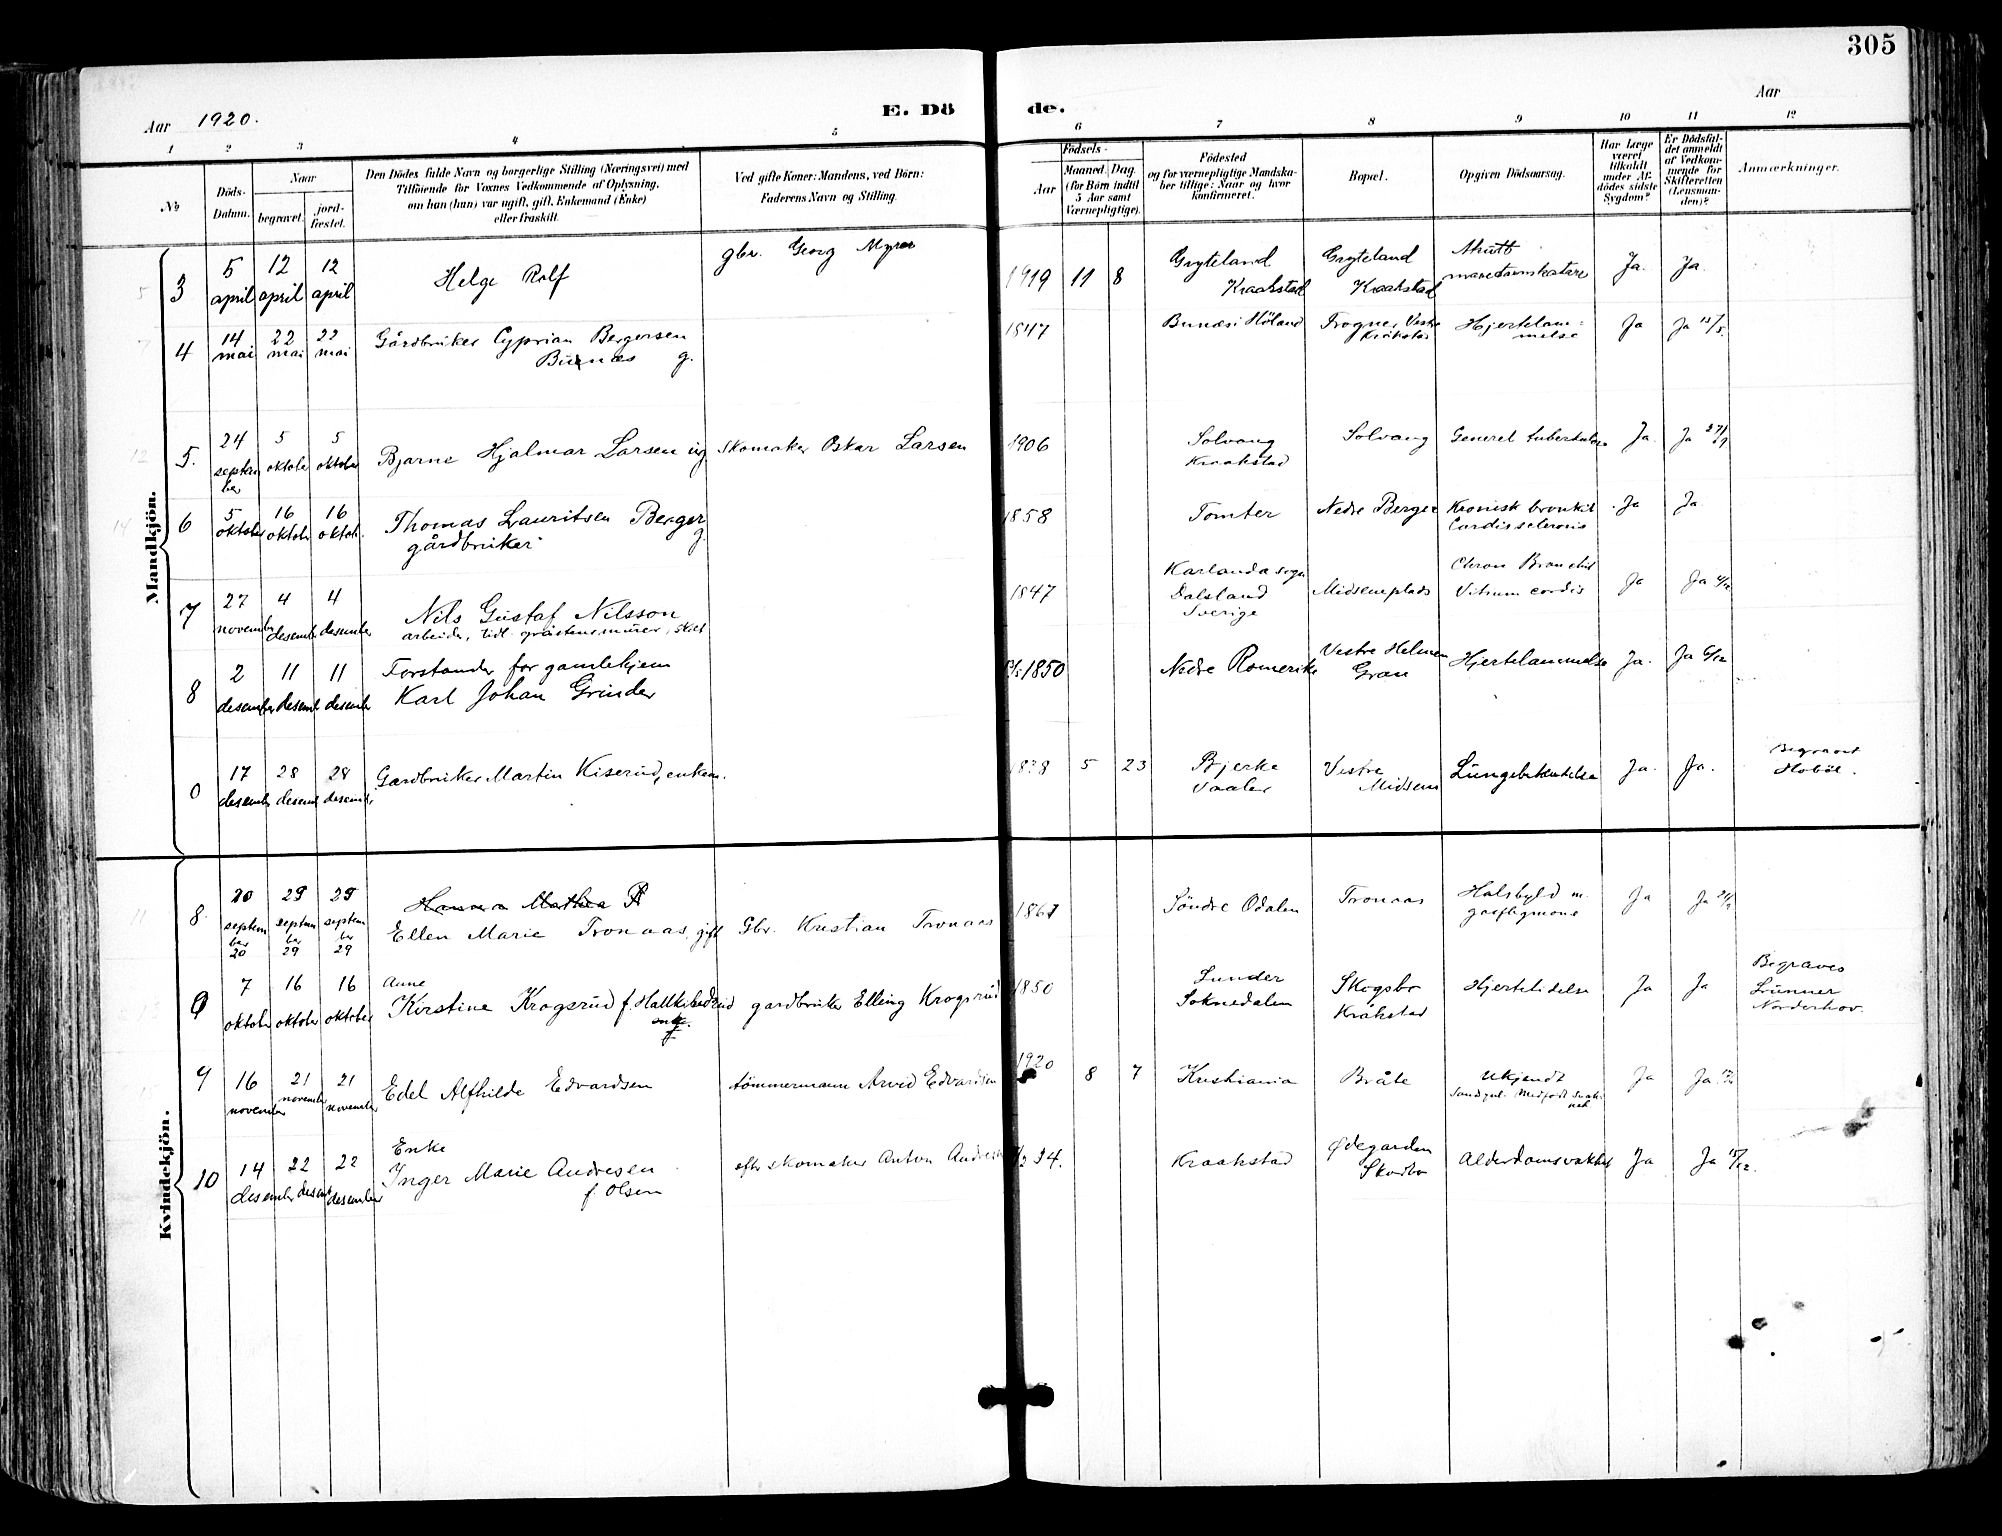 305
Aar 1920.
E. Dö
de.
Aar
1 2 3 4 5 6 7 8 9 10 11 12
№
Döds-
Datum.
Naar
begravet.
jord-
fæstet.
Den Dödes fulde Navn og borgerlige Stilling (Næringsvei) med
Tilföiende for Voxnes Vedkommende af Oplysning,
om han (hun) var ugift, gift, Enkemand (Enke)
eller fraskilt.
Ved gifte Koner: Mandens, ved Börn:
Faderens Navn og Stilling.
Födsels-
Aar
Maaned. Dag.
(for Börn indtil
5 Aar samt
Værnepligtige).
Födested
og for værnepligtige Mandska-
ber tillige: Naar og hvor
konfirmeret.
Bopæl.
Opgiven Dödsaarsag.
Har Læge
været
tilkaldt
under Af-
dödes sidste
Sygdom?
Er Dödsfal-
det anmeldt
af Vedkom-
mende for
Skifteretten
(Lensman-
den)?
Anmærkninger.
Mandkjön.
3 5 april 12 april 12 april Helge Rolf gbr. Georg Myrer 1919 11 8 Gryteland Kraakstad Gryteland Kraakstad Akutt Ja. Ja.
4 14 mai 22 mai 22 mai Gårdbruker Cyprian Bergersen
Bunæs g. 1847 Bunæs i Höland Frogner, Vestre Kråkstad Hjertelam=
melse Ja Ja 15/5.
5. 24 septem
ber 5 oktober 5 oktober Bjarne Hjalmar Larsen ug. Skomaker Oskar Larsen 1906 Solvang
Kraakstad Solvang Generel tuberkulose Ja. Ja 27/9
6 5 oktober 16 oktober 16 oktob. Thomas Lauritsen Berger
gårdbruker g. 1858 Tomter Nedre Berger Kronisk bronkit
Cardiosclerosis Ja Ja
7 27 november 4 desember 4 desember Nils Gustaf Nilsson
arbeider, tidl. gråstensmurer, 1847 Karlanda sogn
Dalsland
Sverige Midsemplads Chron Bronchit
Vitium cordis Ja Ja 4/12
8 2 desember 11 desemb 11 desember Forstander for gamlehjem
Karl Johan Grinder 1850 Nedre Romerike Vestre Helmen
Gran Hjertelammelse Ja. Ja 6/12
0 17 desember 28 desemb 28 desemb Gardbruker Martin Kiserud, enkem. 1838 5 23 Bjerke
Vaaler Vestre
Midsem Lungebetændelse Ja. Ja. Begravet
Hobøl.
Kvindekjön.
8. 20 septem
ber
20 29 septem
ber
29 29 septem
br
29 Hanna Mathea
Ellen Marie Tronaas, gift Gbr. Kristian Tronaas 1867 Söndre Odalen Tronaas Halsbyld m.
gasflegmone Ja Ja 21/9
0 7 oktober 16 oktober 16 oktober Anne
Kirstine Krogsrud f. gardbruker Elling Krogsrud 1850 Lunder
Soknedalen Skogsbo
Kråkstad Hjertelidelse Ja Ja Begraves
Lunner
Norderhov.
9 16 november 21 november 21 november Edel Alfhilde Edvardsen tömmermann Arvid Edvardsen 1920 8 7 Kristiania Bråte Ukjendt
Sandsynl. Medfödt svak-
het Ja Ja
10 14 desember 22 desemb 22 desember Enke
Inger Marie Andresen
f. Olsen efter skomaker Anton Andresen 34. Kraakstad Ødegarden
Skodbo Alderdomssvakhet Ja Ja 15/12.